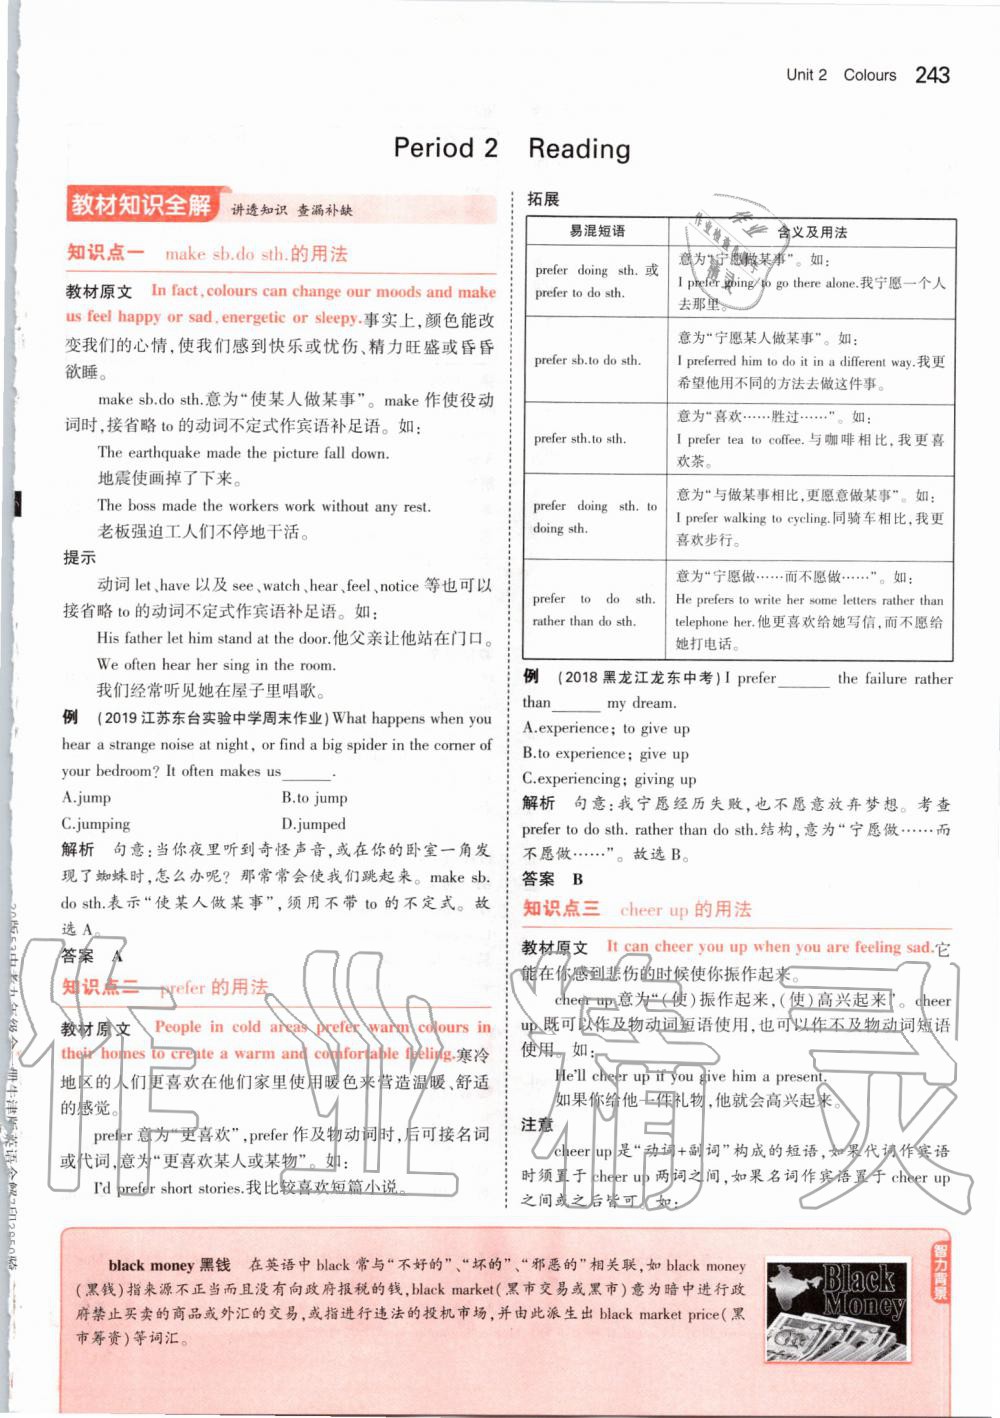 Unit 2 Colours 243
Period 2 Reading
教材知识全解 讲透知识 查漏补缺
知识点一 make sb.do sth.的用法
教材原文 In fact,colours can change our moods and make
us feel happy or sad,energetic or sleepy.事实上,颜色能改
变我们的心情,使我们感到快乐或忧伤、精力旺盛或昏昏
欲睡。
make sb.do sth.意为“使某人做某事”。make 作使役动
词时,接省略 to 的动词不定式作宾语补足语。如:
The earthquake made the picture fall down.
地震使画掉了下来。
The boss made the workers work without any rest.
老板强迫工人们不停地干活。
提示
动词 let、have 以及 see、watch、hear、feel、notice 等也可以
接省略 to 的动词不定式作宾语补足语。如:
His father let him stand at the door.他父亲让他站在门口。
We often hear her sing in the room.
我们经常听见她在屋子里唱歌。
例 (2019江苏东台实验中学周末作业)What happens when you
hear a strange noise at night, or find a big spider in the corner of
your bedroom? It often makes us______.
A.jump B.to jump
C.jumping D.jumped
解析 句意:当你夜里听到奇怪声音,或在你的卧室一角发
现了蜘蛛时,怎么办呢? 那常常会使我们跳起来。make sb.
do sth.表示“使某人做某事”,须用不带 to 的不定式。故
选 A。
答案 A
知识点二 prefer 的用法
教材原文 People in cold areas prefer warm colours in
their homes to create a warm and comfortable feeling.寒冷
地区的人们更喜欢在他们家里使用暖色来营造温暖、舒适
的感觉。
prefer 意为“更喜欢”,prefer 作及物动词时,后可接名词
或代词,意为“更喜欢某人或某物”。如:
I'd prefer short stories.我比较喜欢短篇小说。
拓展
易混短语 含义及用法
prefer doing sth. 或
prefer to do sth.
意为“宁愿做某事”。如:
I prefer going/to go there alone.我宁愿一个人
去那里。
prefer sb.to do sth.
意为“宁愿某人做某事”。如:
I preferred him to do it in a different way.我更
希望他用不同的方法去做这件事。
prefer sth.to sth.
意为“喜欢……胜过……”。如:
I prefer tea to coffee.与咖啡相比,我更喜
欢茶。
prefer doing sth. to
doing sth.
意为“与做某事相比,更愿意做某事”。如:
I prefer walking to cycling.同骑车相比,我更
喜欢步行。
prefer to do sth.
rather than do sth.
意为“宁愿做……而不愿做……”。如:
He prefers to write her some letters rather than
telephone her.他更喜欢给她写信,而不愿给
她打电话。
例 (2018黑龙江龙东中考)I prefer______ the failure rather
than______ my dream.
A.experience; to give up
B.to experience; give up
C.experiencing; giving up
解析 句意:我宁愿经历失败,也不愿意放弃梦想。考查
prefer to do sth. rather than do sth.结构,意为“宁愿做……而
不愿做……”。故选 B。
答案 B
知识点三 cheer up 的用法
教材原文 It can cheer you up when you are feeling sad.它
能在你感到悲伤的时候使你振作起来。
cheer up 意为“(使)振作起来,(使)高兴起来”。cheer
up 既可以作及物动词短语使用,也可以作不及物动词短语
使用。如:
He'll cheer up if you give him a present.
如果你给他一件礼物,他就会高兴起来。
注意
cheer up 是“动词+副词”构成的短语,如果代词作宾语
时须置于 cheer up 两词之间,如果名词作宾语置于 cheer up
之间或之后皆可。如:
black money 黑钱 在英语中 black 常与“不好的”、“坏的”、“邪恶的”相关联,如 black money
(黑钱)指来源不正当而且没有向政府报税的钱,black market(黑市交易或黑市)意为暗中进行政
府禁止买卖的商品或外汇的交易,或指进行违法的投机市场,并由此派生出 black market price(黑
市筹资)等词汇。
Black
Money
智力背景
作业精灵